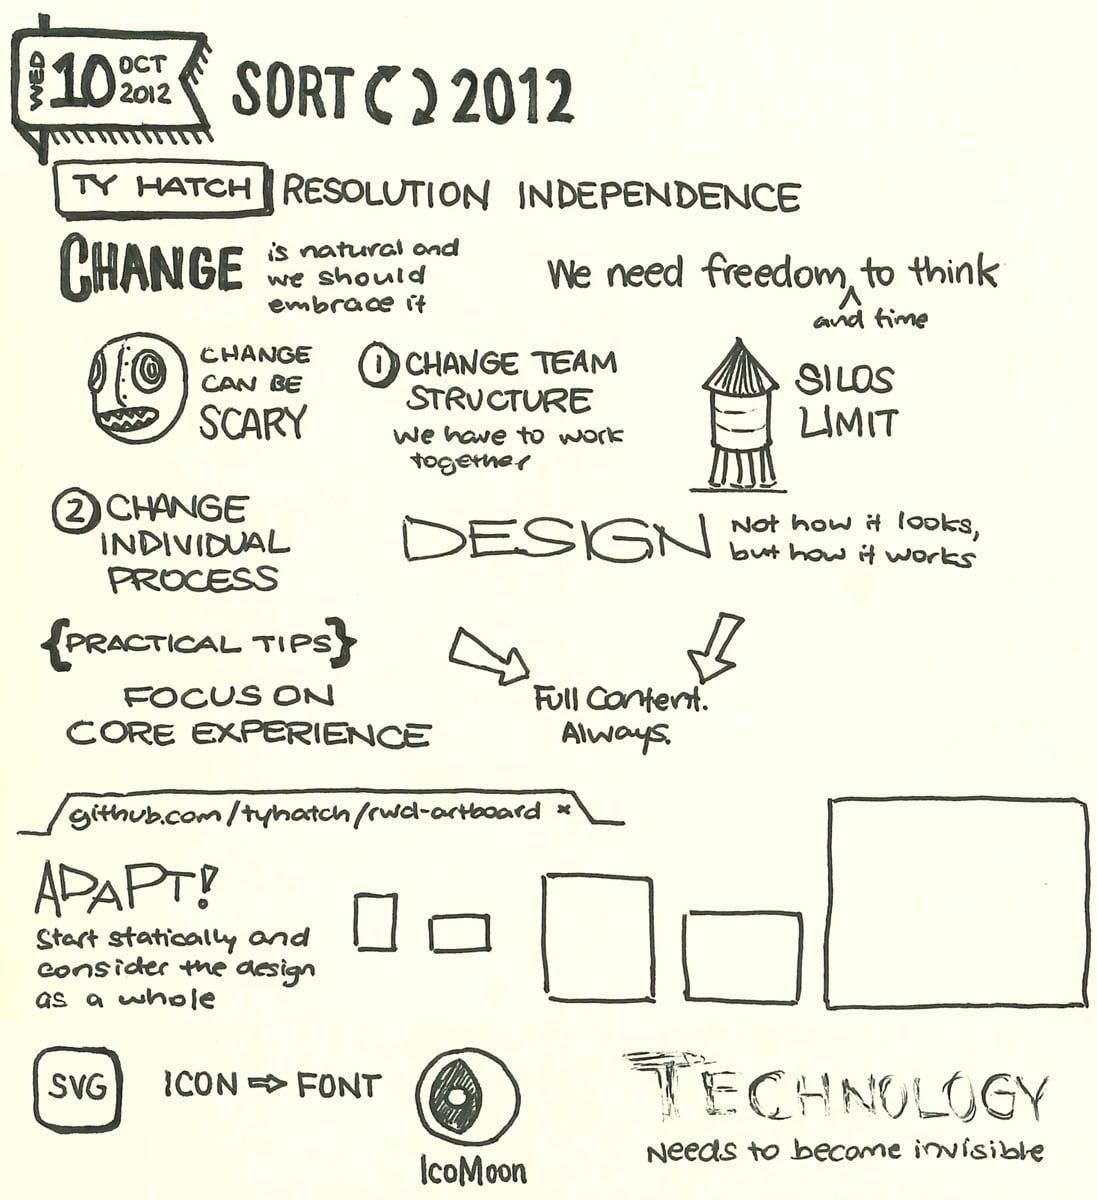 WED 10 OCT 2012
SORT 2012
TY HATCH RESOLUTION INDEPENDENCE
CHANGE is natural and
we should
embrace it
We need freedom to think
and time
CHANGE
CAN BE
SCARY
1 CHANGE TEAM
STRUCTURE
We have to work
together
SILOS
LIMIT
2 CHANGE
INDIVIDUAL
PROCESS
DESIGN Not how it looks,
but how it works
{PRACTICAL TIPS}
FOCUS ON
CORE EXPERIENCE
Full Content.
Always.
github.com/tyhatch/rwd-artboard x
ADAPT!
Start statically and
consider the design
as a whole
SVG
ICON ⇨ FONT
IcoMoon
TECHNOLOGY
Needs to become invisible